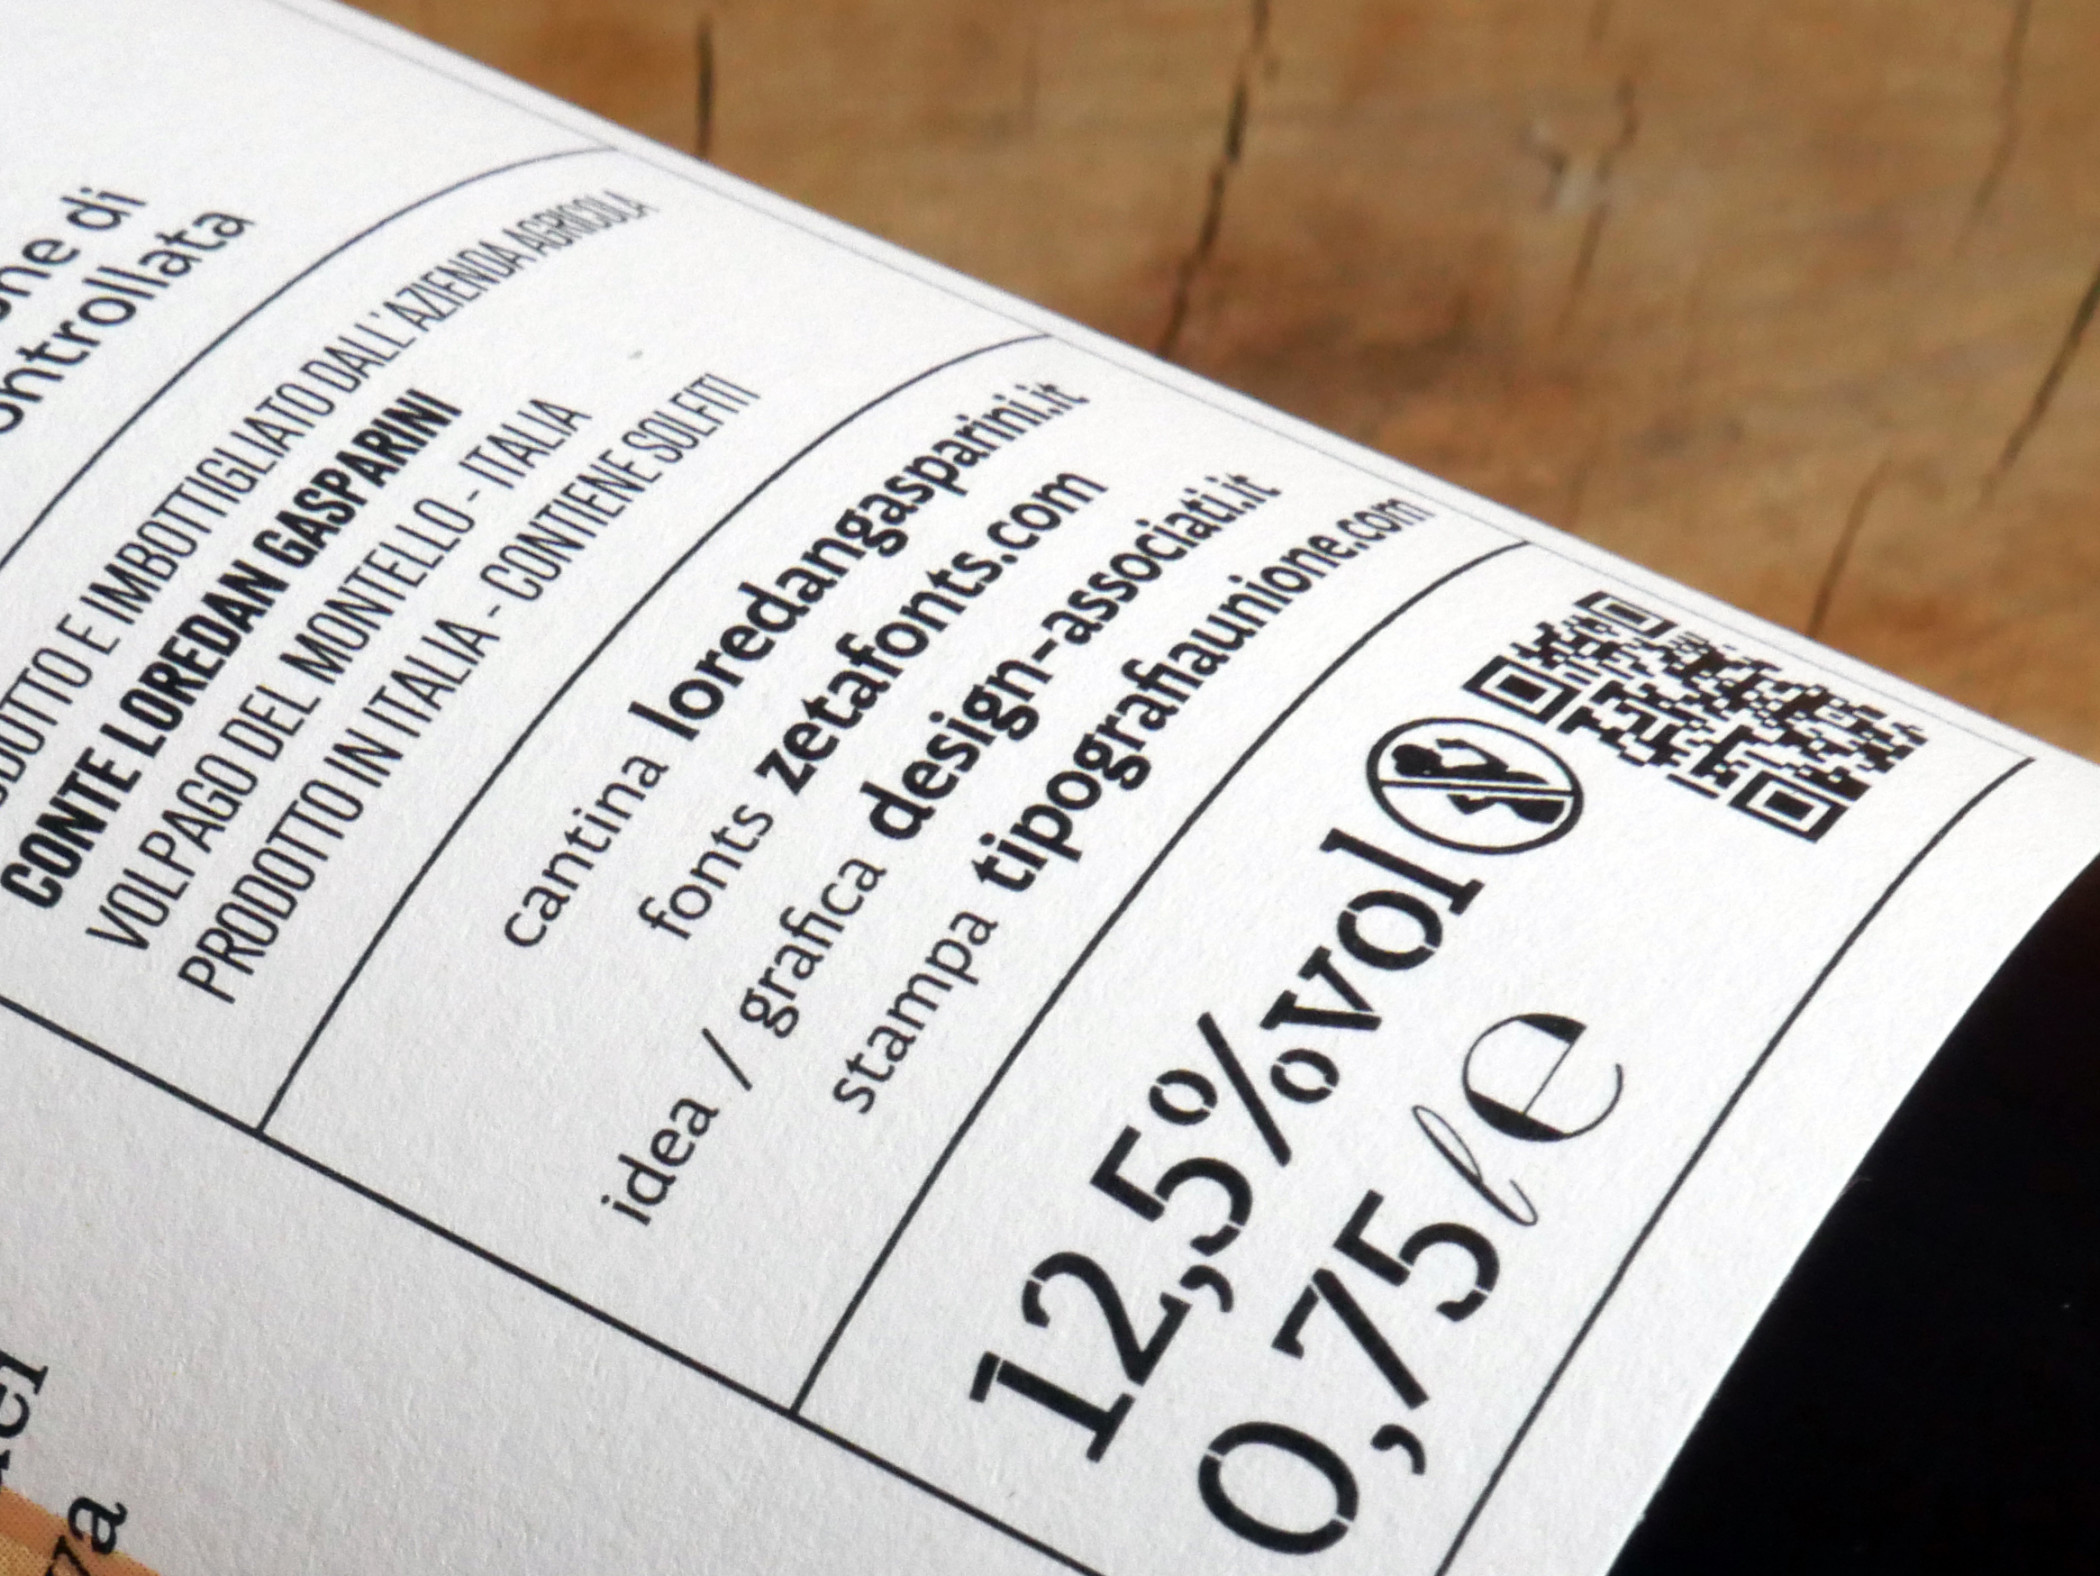 di
E IMBOTTIGLIATO DALL'AZIENDA AGRICOLA
CONTE LOREDAN GASPARINI
VOLPAGO DEL MONTELLO - ITALIA
PRODOTTO IN ITALIA - CONTIENE SOLFITI
cantina loredangasparini.it
fonts zetafonts.com
idea / grafica design-associati.it
stampa tipografiaunione.com
12,5%vol
0,75 ℓ e